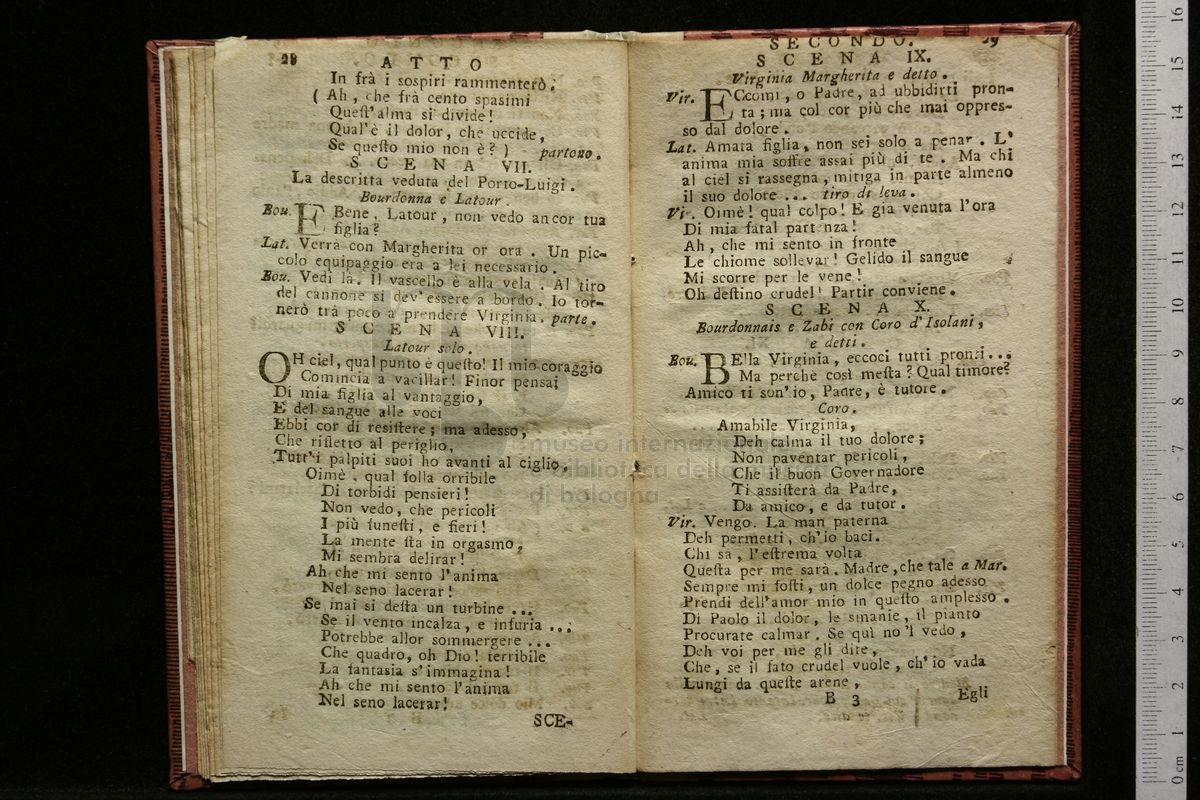 28
A T T O
In frà i sospiri rammenterò;
( Ah, che frà cento spasimi
Quest'alma si divide!
Qual'è il dolor, che uccide,
Se questo mio non è? ) partono.
S C E N A VII.
La descritta veduta del Porto-Luigi.
Bourdonna e Latour.
Bou. E Bene, Latour, non vedo ancor tua
figlia?
Lat. Verrà con Margherita or ora. Un pic-
colo equipaggio era a lei necessario.
Bou. Vedi là. Il vascello è alla vela. Al tiro
del cannone si dev'essere a bordo. Io tor-
nerò trà poco a prendere Virginia. parte.
S C E N A VIII.
Latour solo.
OH ciel, qual punto è questo! Il mio coraggio
Comincia a vacillar! Finor pensai
Di mia figlia al vantaggio,
E del sangue alle voci
Ebbi cor di resistere; ma adesso,
Che rifletto al periglio,
Tutt'i palpiti suoi ho avanti al ciglio.
Oimè, qual folla orribile
Di torbidi pensieri!
Non vedo, che pericoli
I più funesti, e fieri!
La mente sta in orgasmo,
Mi sembra delirar!
Ah che mi sento l'anima
Nel seno lacerar!
Se mai si desta un turbine ...
Se il vento incalza, e infuria ...
Potrebbe allor sommergere ...
Che quadro, oh Dio! terribile
La fantasia s'immagina!
Ah che mi sento l'anima
Nel seno lacerar!
SCE-
SECONDO. 29
S C E N A IX.
Virginia Margherita e detto.
Vir. ECcomi, o Padre, ad ubbidirti pron-
ta; ma col cor più che mai oppres-
so dal dolore.
Lat. Amata figlia, non sei solo a penar. L'
anima mia soffre assai più di te. Ma chi
al ciel si rassegna, mitiga in parte almeno
il suo dolore ... tiro di leva.
Vir. Oimè! qual colpo! E gia venuta l'ora
Di mia fatal partenza!
Ah, che mi sento in fronte
Le chiome sollevar! Gelido il sangue
Mi scorre per le vene!
Oh destino crudel! Partir conviene.
S C E N A X.
Bourdonnais e Zabi con Coro d'Isolani,
e detti.
Bou. BElla Virginia, eccoci tutti pronti...
Ma perchè così mesta? Qual timore?
Amico ti son'io, Padre, è tutore.
Coro.
Amabile Virginia,
Deh calma il tuo dolore;
Non paventar pericoli,
Che il buon Governadore
Ti assisterà da Padre,
Da amico, e da tutor.
Vir. Vengo. La man paterna
Deh permetti, ch'io baci.
Chi sa, l'estrema volta
Questa per me sarà. Madre, che tale a Mar.
Sempre mi fosti, un dolce pegno adesso
Prendi dell'amor mio in questo amplesso.
Di Paolo il dolor, le smanie, il pianto
Procurate calmar. Se quì no'l vedo,
Deh voi per me gli dite,
Che, se il fato crudel vuole, ch'io vada
Lungi da queste arene,
B 3 Egli
museo internazionale
e biblioteca della musica
di bologna
0 cm 1 2 3 4 5 6 7 8 9 10 11 12 13 14 15 16